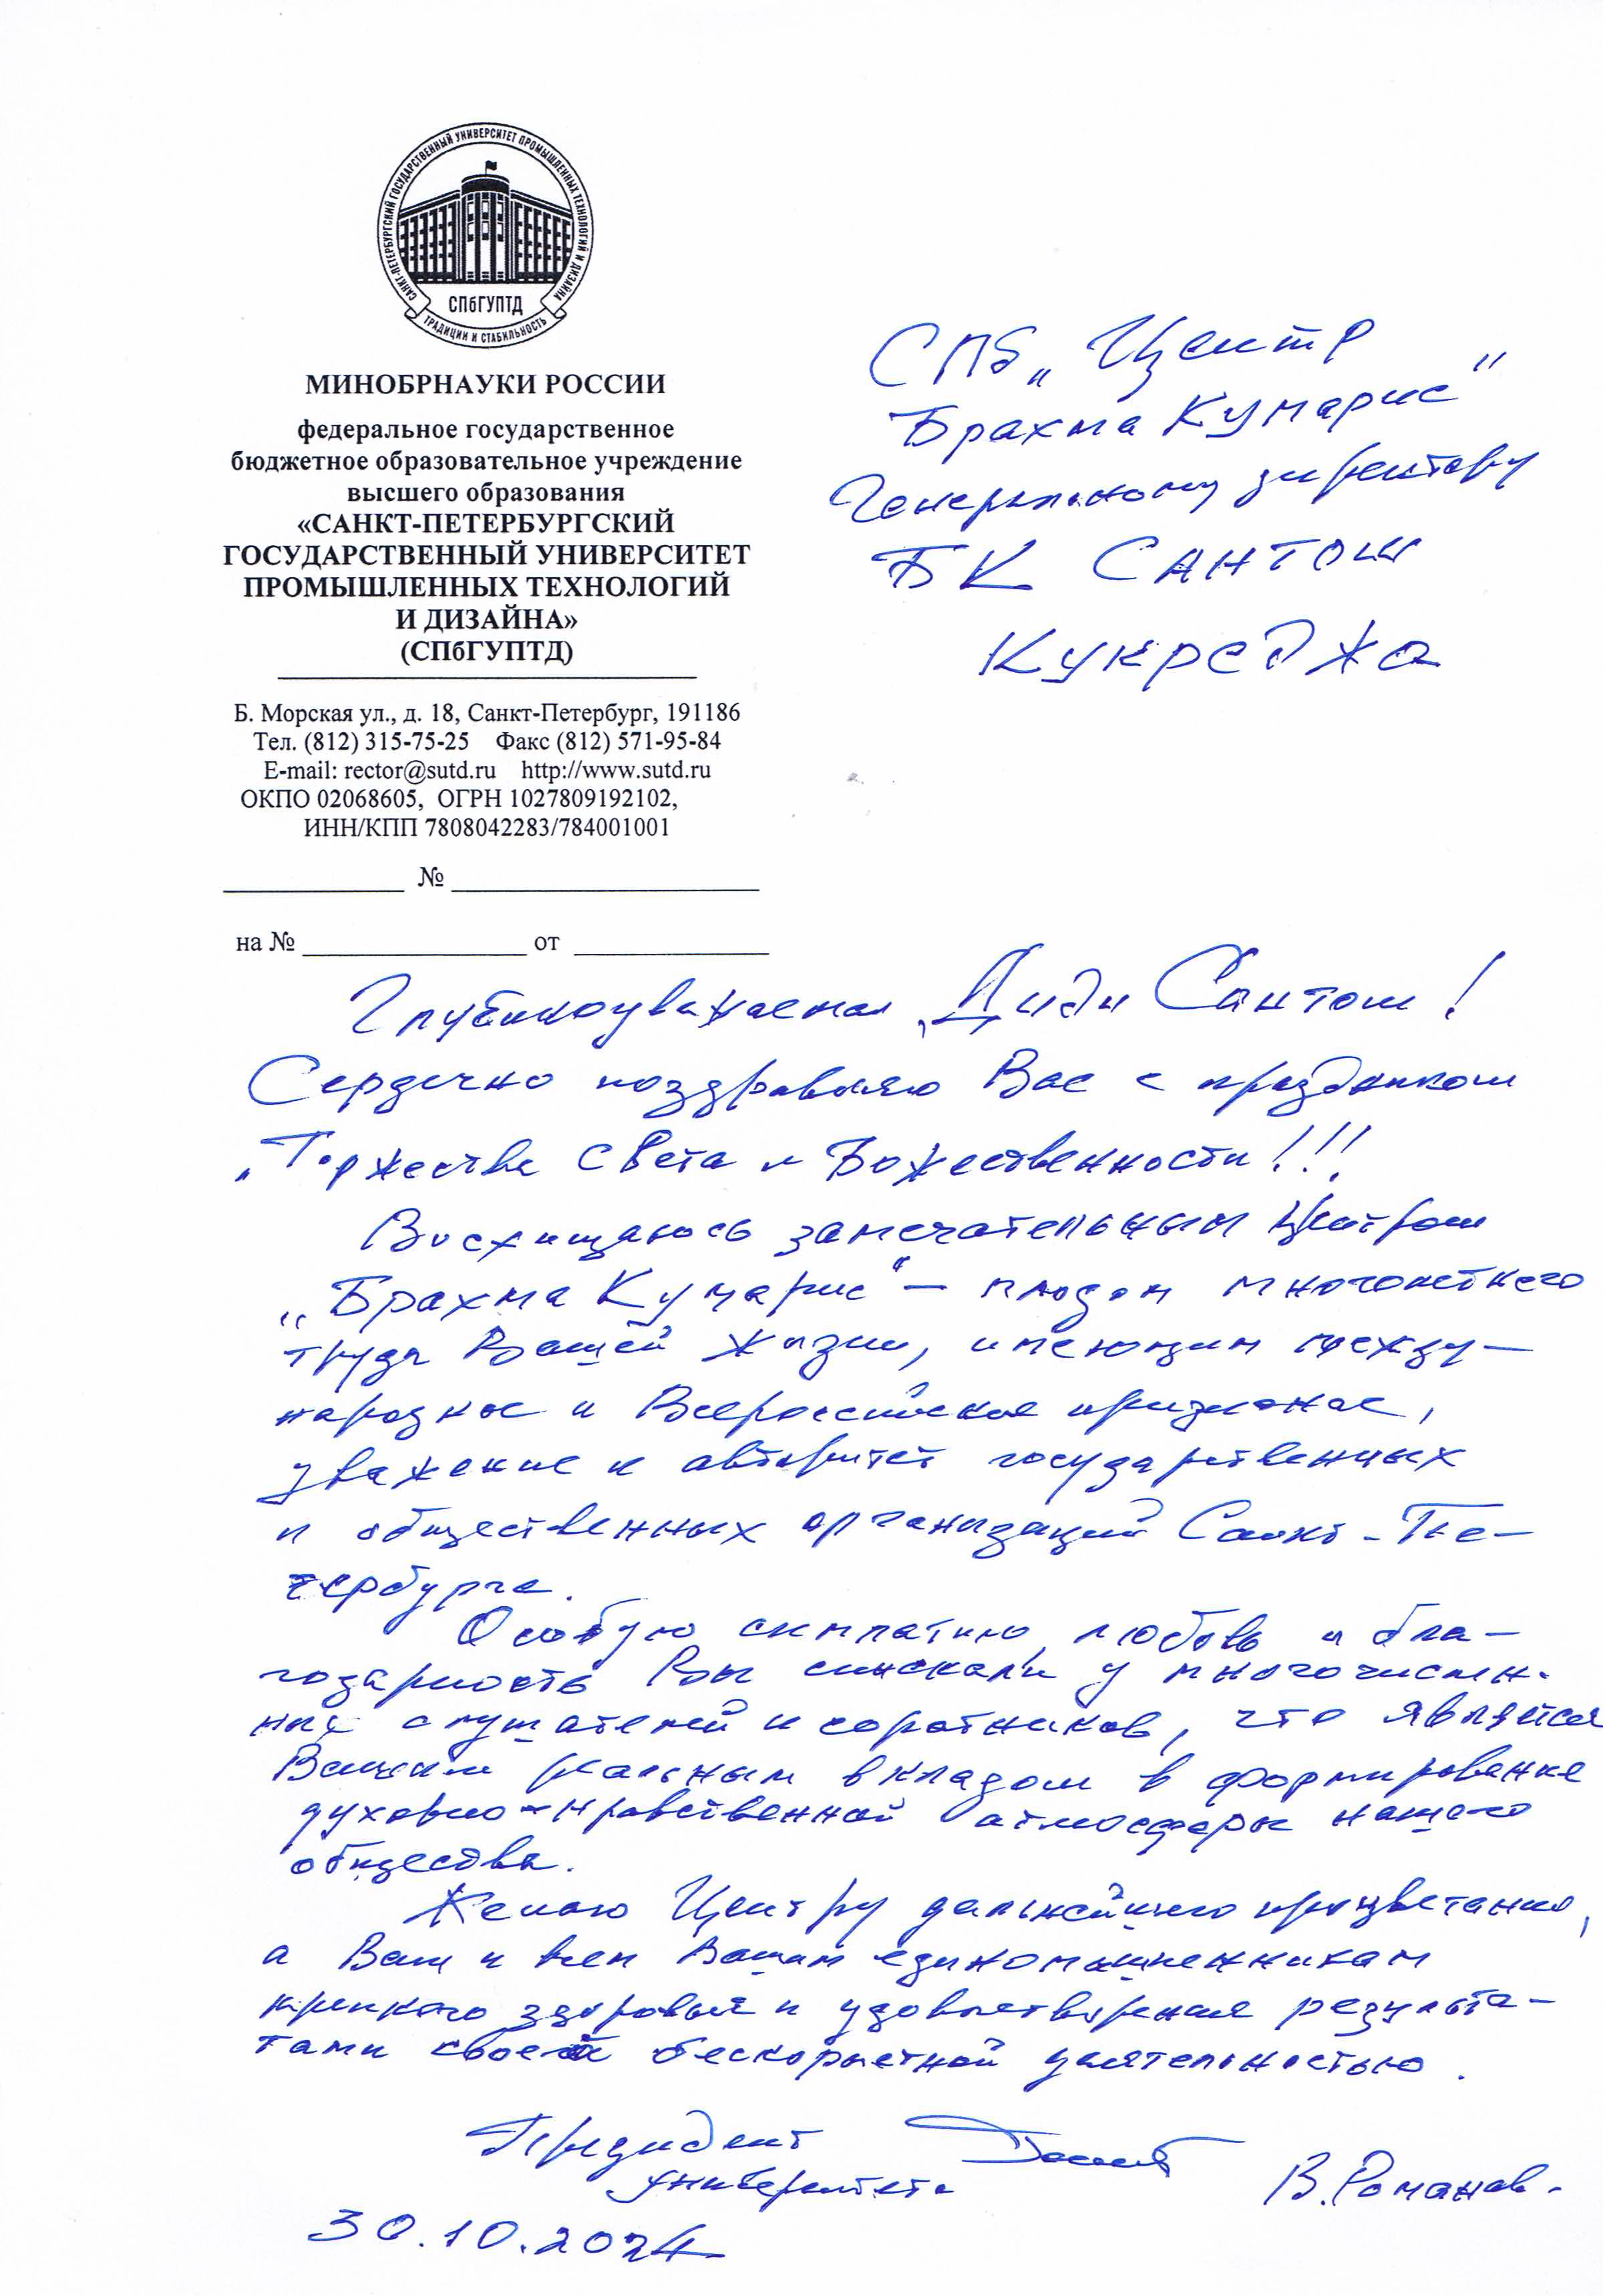 САНКТ-ПЕТЕРБУРГСКИЙ ГОСУДАРСТВЕННЫЙ УНИВЕРСИТЕТ ПРОМЫШЛЕННЫХ ТЕХНОЛОГИЙ И ДИЗАЙНА
СПбГУПТД
ТРАДИЦИИ И СТАБИЛЬНОСТЬ
МИНОБРНАУКИ РОССИИ
федеральное государственное
бюджетное образовательное учреждение
высшего образования
«САНКТ-ПЕТЕРБУРГСКИЙ
ГОСУДАРСТВЕННЫЙ УНИВЕРСИТЕТ
ПРОМЫШЛЕННЫХ ТЕХНОЛОГИЙ
И ДИЗАЙНА»
(СПбГУПТД)
Б. Морская ул., д. 18, Санкт-Петербург, 191186
Тел. (812) 315-75-25 Факс (812) 571-95-84
E-mail: rector@sutd.ru http://www.sutd.ru
ОКПО 02068605, ОГРН 1027809192102,
ИНН/КПП 7808042283/784001001
№
на № от
СПб „Центр
Брахма Кумарис"
Генеральному директору
БК Сантош
Кукреджа
Глубокоуважаемая Диди Сантош!
Сердечно поздравляю Вас с праздником
„Торжества Света и Божественности!!!
Восхищаюсь замечательным Центром
„Брахма Кумарис" – плодом многолетнего
труда Вашей жизни, имеющим между-
народное и Всероссийское признание,
уважение и авторитет государственных
и общественных организаций Санкт-Пе-
тербурга.
Особую симпатию, любовь и бла-
годарность Вы снискали у многочислен-
ных слушателей и соратников, что является
Вашим реальным вкладом в формирование
духовно-нравственной атмосферы нашего
общества.
Желаю Центру дальнейшего процветания,
а Вам и всем Вашим единомышленникам
крепкого здоровья и удовлетворения результа-
тами своей бескорыстной деятельностью.
Президент
университета
В. Романов.
30.10.2024